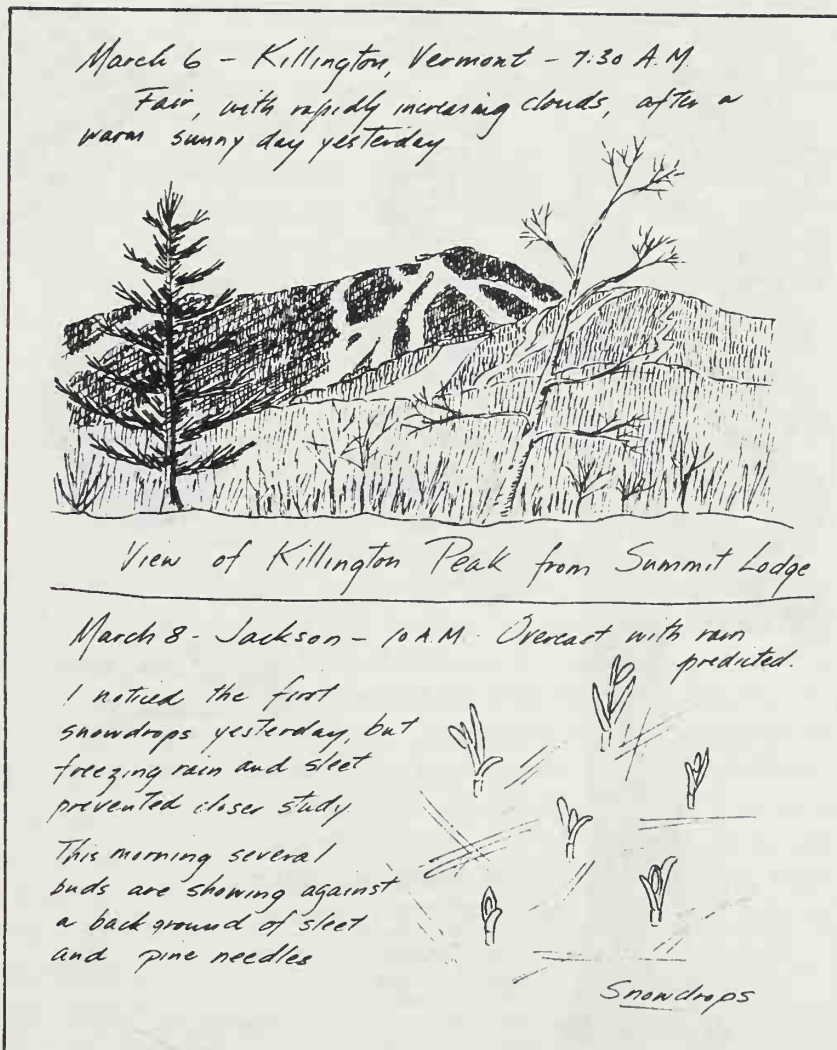 March 6 - Killington, Vermont - 7:30 A.M.
Fair, with rapidly increasing clouds, after a
warm sunny day yesterday
View of Killington Peak from Summit Lodge
March 8 - Jackson - 10 A.M. Overcast with rain
predicted.
I noticed the first
snowdrops yesterday, but
freezing rain and sleet
prevented closer study.
This morning several
buds are showing against
a background of sleet
and pine needles
Snowdrops